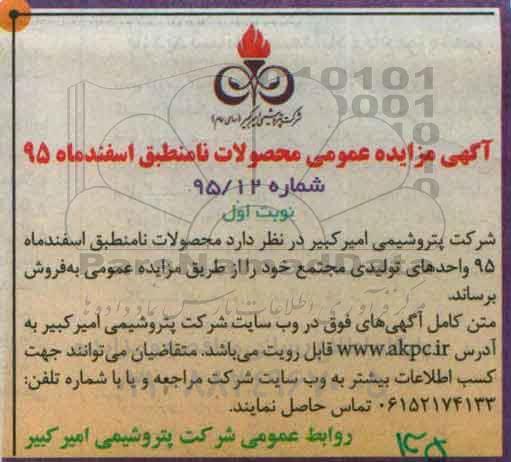 شرکت پتروشیمی امیرکبیر (سهامی عام)
آگهی مزایده عمومی محصولات نامنطبق اسفندماه ۹۵
شماره ۹۵/۱۲
نوبت اول
شرکت پتروشیمی امیرکبیر در نظر دارد محصولات نامنطبق اسفندماه
۹۵ واحدهای تولیدی مجتمع خود را از طریق مزایده عمومی به‌فروش
برساند.
متن کامل آگهی‌های فوق در وب سایت شرکت پتروشیمی امیرکبیر به
آدرس www.akpc.ir قابل رویت می‌باشد. متقاضیان می‌توانند جهت
کسب اطلاعات بیشتر به وب سایت شرکت مراجعه و یا با شماره تلفن:
۰۶۱۵۲۱۷۴۱۳۳ تماس حاصل نمایند.
روابط عمومی شرکت پتروشیمی امیرکبیر
ParsNamadData